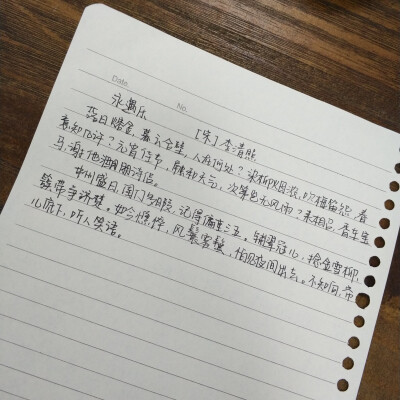 Date.
No.
永遇乐
[宋] 李清照
落日熔金,暮云合璧,人在何处?染柳烟浓,吹梅笛怨,春
意知几许?元宵佳节,融和天气,次第岂无风雨?来相召,香车宝
马,谢他酒朋诗侣。
中州盛日,闺门多暇,记得偏重三五。铺翠冠儿,捻金雪柳,
簇带争济楚。如今憔悴,风鬟霜鬓,怕见夜间出去。不如向,帘
儿底下,听人笑语。